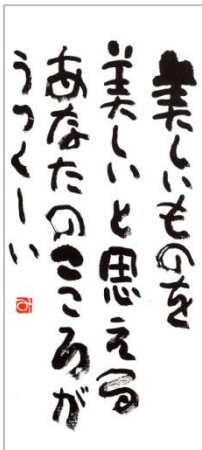 美しいものを
美しいと思える
あなたのこころが
うつくしい